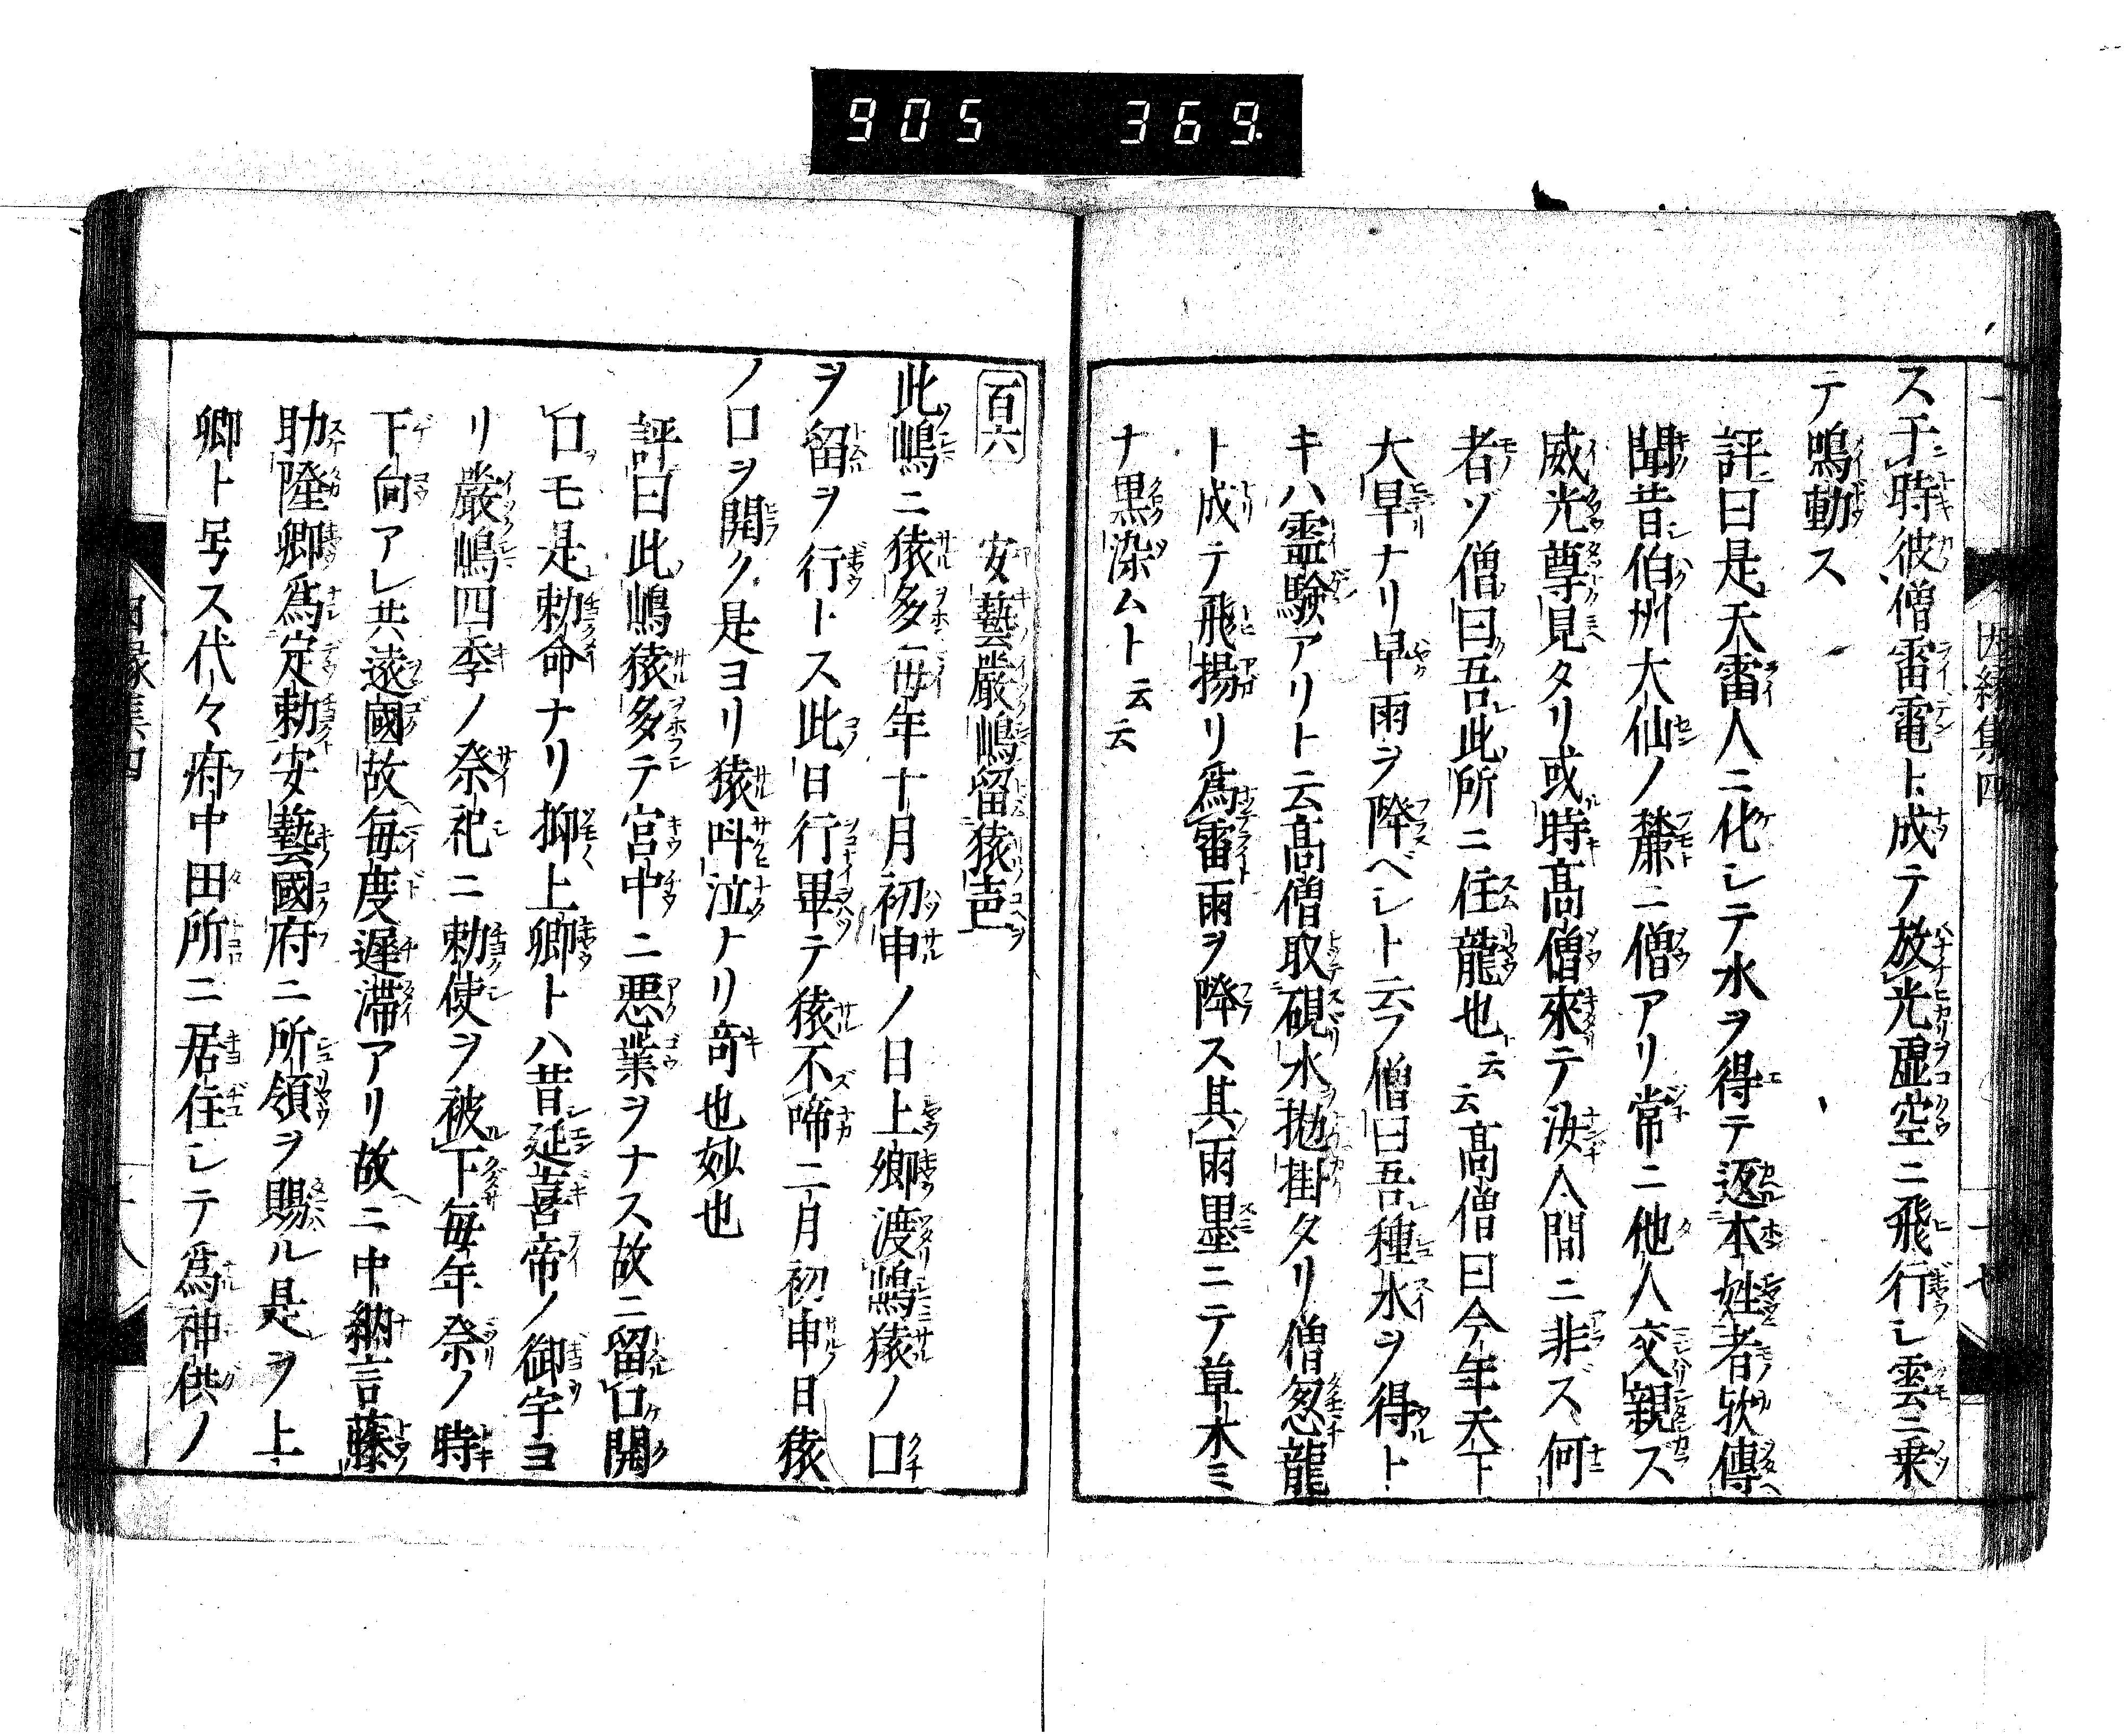 905 369
因縁集四 十七
ス于時彼僧雷電ト成テ放光虚空ニ飛行シ雲ニ乗
テ鳴動ス
評曰是天雷人ニ化シテ水ヲ得テ返本姓者歟傳
聞昔伯州大仙ノ麓ニ僧アリ常ニ他人交親ス
威光尊見タリ或時高僧來テ汝人間ニ非ズ何
者ゾ僧曰吾此所ニ住龍也云云高僧曰今年天下
大旱ナリ早雨ヲ降ベシト云フ僧曰吾種水ヲ得ト
キハ霊験アリト云高僧取硯水拋掛タリ僧忽龍
ト成テ飛揚リ爲雷雨ヲ降ス其雨墨ニテ草木ミ
ナ黒染ムト云云
百六 安藝嚴嶋留猿声
此嶋ニ猿多毎年十月初申ノ日上卿渡嶋猿ノ口
ヲ留ヲ行トス此日行畢テ猿不啼二月初申日猿
ノ口ヲ開ク是ヨリ猿呌泣ナリ竒也妙也
評曰此嶋猿多テ宮中ニ悪業ヲナス故ニ留口開
口モ是勅命ナリ抑上卿トハ昔延喜帝ノ御宇ヨ
リ嚴嶋四季ノ祭祀ニ勅使ヲ被下毎年祭ノ時
下向アレ共遠國故毎度遲滞アリ故ニ中納言藤
助隆卿爲定勅安藝國府ニ所領ヲ賜ル是ヲ上
卿ト号ス代々府中田所ニ居住シテ爲神供ノ
因縁集四